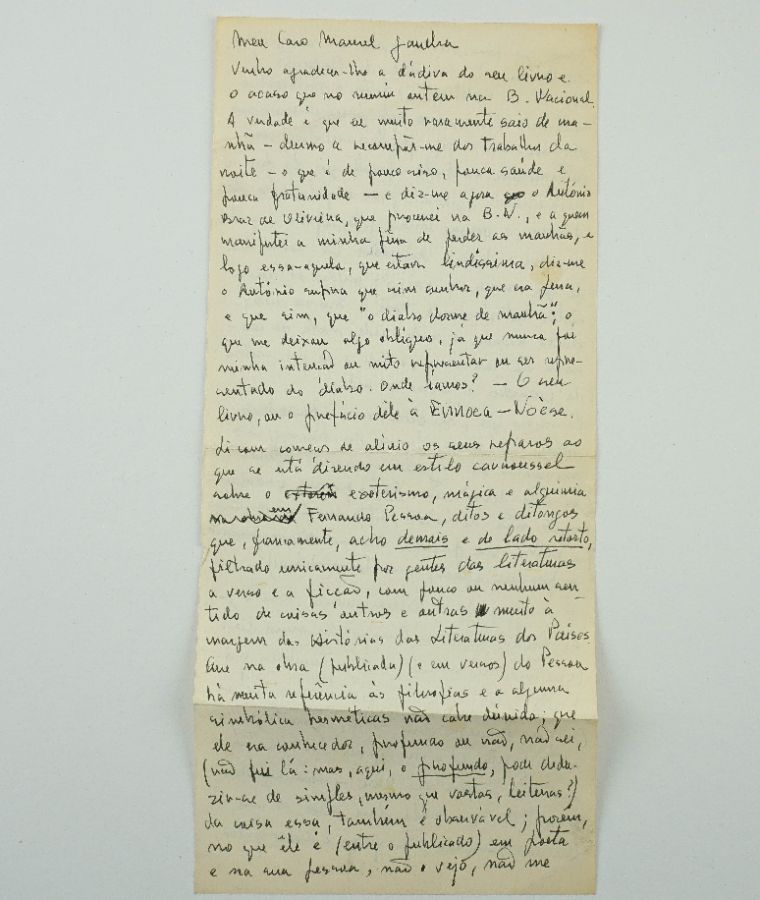 Meu Caro Manuel Gandra
Venho agradecer-lhe a dádiva do seu livro e
o acaso que no reuniu ontem na B. Nacional.
A verdade é que se muito raramente saio de ma-
nhã – durmo a recompôr-me dos trabalhos da
noite – o que é de pouco siso, pouca saúde e
pouca fratunidade — e diz-me agora o António
Braz de Oliveira, que procurei na B.N., e a quem
manifestei a minha pena de perder as manhãs, e
logo essa-aquela, que estava lindíssima, diz-me
o António que sim senhor, que era pena,
e que sim, que "o diabo dorme de manhã"; o
que me deixou algo oblíquo, já que nunca foi
minha intenção ou mito representar ou ser repre-
sentado do diabo. Onde íamos? – O seu
livro, ou o prefácio dêle à Ennoea – Noèse.
Li com começos de alívio os seus reparos ao
que se está dizendo em estilo carroussel
sobre o esoterismo, mágica e alquimia
em Fernando Pessoa, ditos e ditongos
que, francamente, acho demais e do lado retorto,
filtrado unicamente por gentes das literaturas
a verso e a ficção, com pouco ou nenhum sen-
tido de coisas outros e outras muito à
margem das Histórias das Literaturas dos Países.
Que na obra (publicada) (e em versos) do Pessoa
há muita referência às filosofias e a alguma
simbólica herméticas não cabe dúvida; que
ele era conhecedor, profundo ou não, não sei,
(não fui lá: mas, aqui, o profundo, pode dedu-
zir-se de simples, mesmo que vastas, leituras?)
da coisa essa, também é observável; porém,
no que êle é (entre o publicado) em poeta
e na sua pessoa, não o vejo, não me